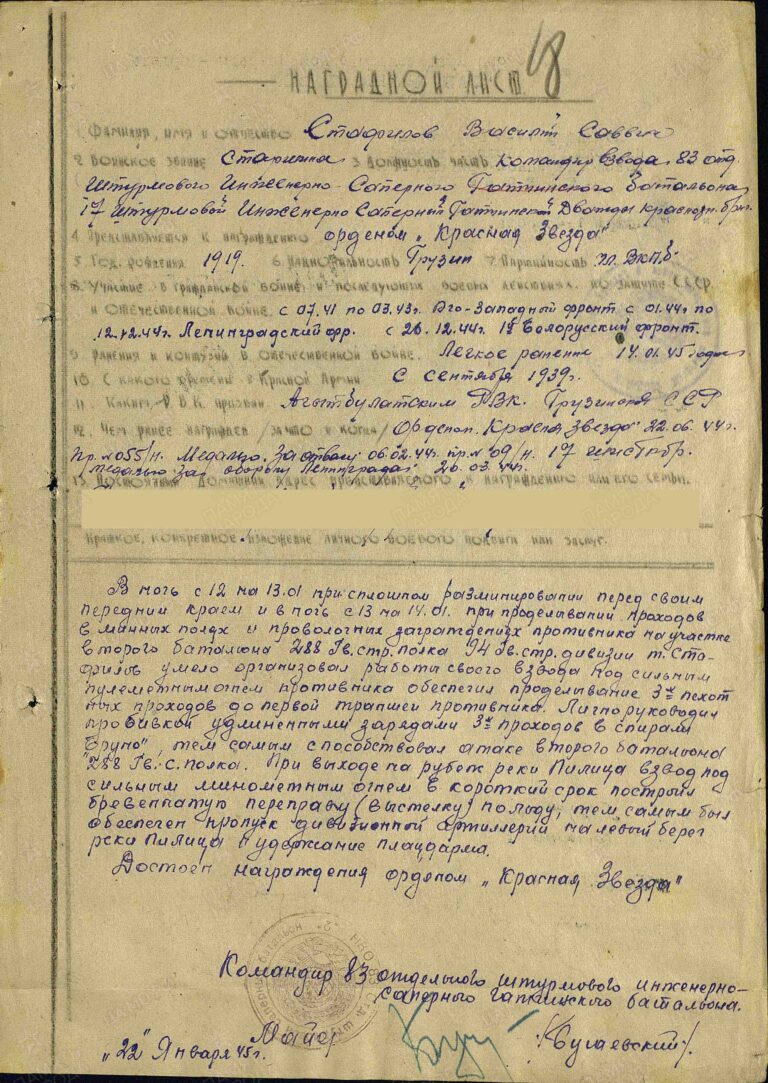 48
НАГРАДНОЙ ЛИСТ
1. Фамилия, имя и отчество Стафилов Василий Саввич
2. Воинское звание Старшина 3. Должность часть Командир взвода 83 отд.
Штурмового Инженерно-Саперного Гатчинского батальона
17 Штурмовой Инженерно Саперный Гатчинской Дважды краснозн. бриг.
4. Представляется к награждению орденом „Красная Звезда"
5. Год рождения 1919. 6. Национальность Грузин 7. Партийность чл. ВКП.б
8. Участие в гражданской войне и последующих боевых действиях по защите СССР
и отечественной войне с 07.41 по 03.43г. Юго-Западный фронт с 01.44г по
12.12.44г. Ленинградский фр. с 26.12.44г. 1й Белорусский фронт.
9. Ранения и контузии в отечественной войне. Легкое ранение 14.01.45 года
10. С какого времени в Красной Армии с сентября 1939г.
11. Каким Р.В.К. призван. Агытбулатским РВК. Грузинская ССР
12. Чем ранее награжден /за что и когда/ Орденом. Красная Звезда 22.06.44г.
Пр. № 055/н. Медалью. За отвагу 06.02.44г. пр. № 09/н. 17 шисбр.
медалью „за оборону Ленинграда" 20.03.44г.
13. Постоянный домашний адрес представляемого к награждению или его семьи.
Краткое, конкретное изложение личного боевого подвига или заслуг.
В ночь с 12 на 13.01 при сплошном разминировании перед своим
передним краем и в ночь с 13 на 14.01. при проделывании проходов
в минных полях и проволочных заграждениях противника на участке
второго баталиона 288 Гв. стр. полка 94 Гв. стр. дивизии т. Ста-
филов умело организовал работы своего взвода под сильным
пулеметным огнем противника обеспечил проделывание 3х пехот
ных проходов до первой траншеи противника. Лично руководил
пробивкой удлиненными зарядами 3х проходов в спирали
„Бруно", тем самым способствовал атаке второго батальона
288 Гв. с. полка. При выходе на рубеж реки Пилица взвод под
сильным минометным огнем в короткий срок построил
бревенчатую переправу (выстелку) по льду, тем самым был
обеспечен пропуск дивизионной артиллерии на левый берег
реки Пилица и удержание плацдарма.
Достоен награждения орденом „Красная Звезда"
Командир 83 отдельного штурмового инженерно-
саперного гатчинского батальона.
Майор /Бугаевский/.
„22" Января 45г.